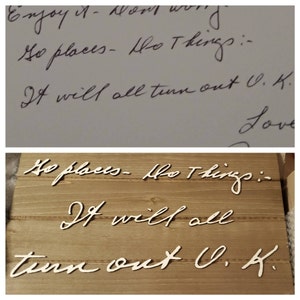 Enjoy it - Dont worry -
Go places - Do Things:-
It will all turn out O. K.
Love
Go places - Do Things:-
It will all
turn out O. K.